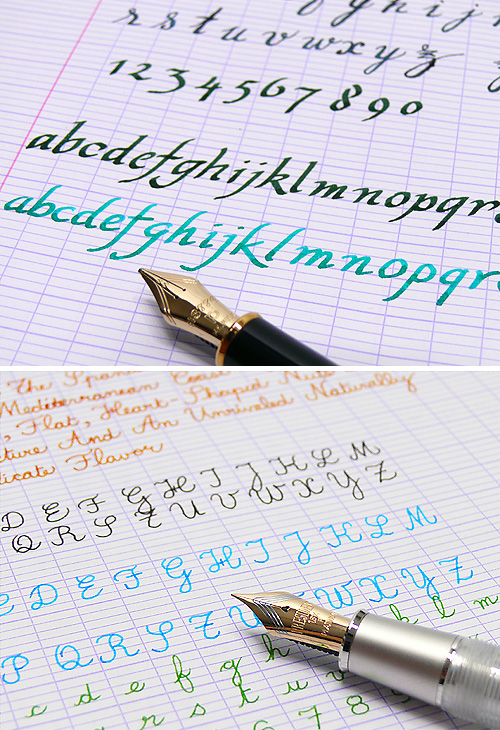 g h i j
r s t u v w x y z
1 2 3 4 5 6 7 8 9 0
abcdefghijklmnopqrs
abcdefghijklmnopqrs
The
Mediterranean
, Flat, Heart-Shaped Nuts
ture And An Unrivaled Naturally
licate Flavor
D E F G H I J K L M
Q R S T U V W X Y Z
D E F G H I J K L M
P Q R S T U V W X Y Z
c d e f g h k l m
r s t u v 6 7 8